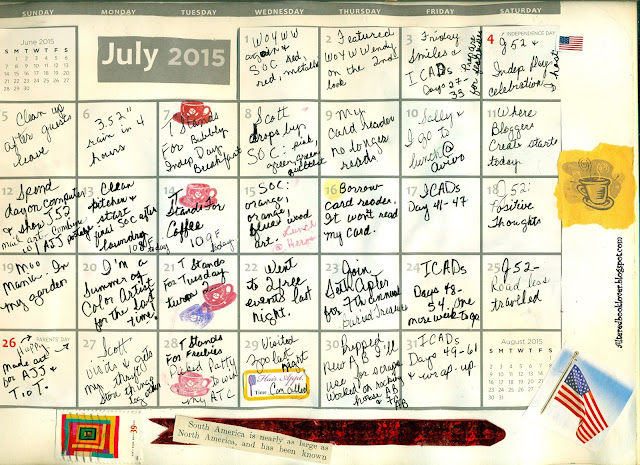 SUNDAY MONDAY TUESDAY WEDNESDAY THURSDAY FRIDAY SATURDAY
June 2015
S M T W T F S
1 2 3 4 5 6
7 8 9 10 11 12 13
14 15 16 17 18 19 20
21 22 23 24 25 26 27
28 29 30
July 2015
1 WOYWW
again &
SOC red,
red, metallic
2 Featured
WOYWW Wendy
on the 2nds
look
3 Friday
Smiles &
ICADs
Days 27-
33
Prepare
for
4 INDEPENDENCE DAY
J52 &
Indep Day
celebration
I host
5 Clean up
after guests
leave
6 3.52"
rain in 4
hours
7 T Stands
For Bubbly
Indep Day
Breakfast
8 Scott
drops by,
SOC: pink,
green, green,
9 My
card reader
no longer
reads
10 Sally &
I go to
lunch @
11 Where
Bloggers
Create starts
today
12 Spend
day on computer
& shop J52
mail art: Combine
w/ AJJ postage
13 Clean
kitchen &
start
first SOC after
laundry
108F today
14 T
Stands For
Coffee
109F today
15 SOC:
orange,
orange,
blues wood
art.
Lunch
@
16 Borrow
card reader.
It won't read
my card.
17 ICADs
Day 41-47
18 J52:
Positive
Thoughts
19 Moo
Mania: In
my garden
20 I'm a
Summer of
Color Artist
for the last
time.
21 T Stands
For Tuesday
22 Went
to 2 free
events last
night.
23 Join
Seth Apter
for 7th annual
Buried Treasure
24 ICADs
Days 48-
54, one
more week to go
25 J52-
Road less
travelled
26 PARENTS' DAY
Happy
Made art
for AJJ &
T is T.
27 Scott
visits & gets
my thrift
store things
28 T Stands
For Freebies
Picked Patty
to win
my ATC
29 Visited
zoo last
night
Hair Appt.
Time
30 Prepped
new ABJ I'll
use for scrape
worked on
house
31 ICADs
Days 49-61
& wrap-up.
August 2015
S M T W T F S
1
2 3 4 5 6 7 8
9 10 11 12 13 14 15
16 17 18 19 20 21 22
23 24 25 26 27 28 29
30 31
39
South America is nearly as large as
North America, and has been known
alteredbooklover.blogspot.com